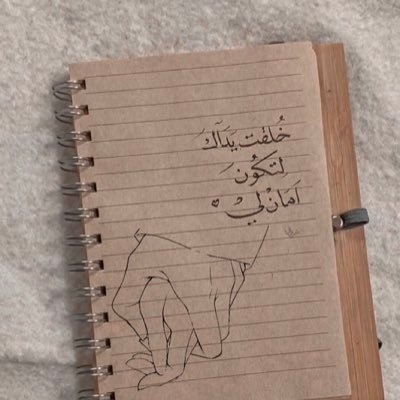 خُلقت يَدَآكَ
لتَكُونَ
اَمَانْ لِيْ